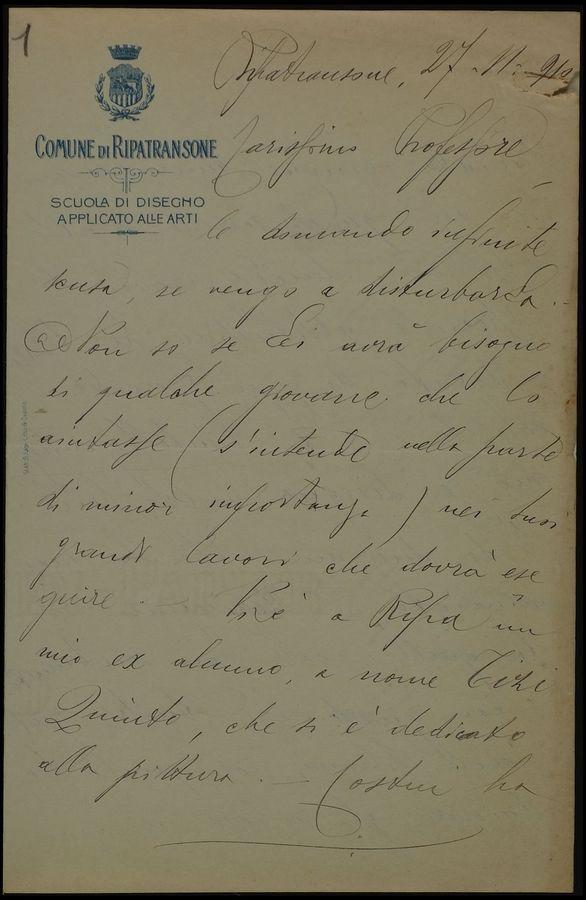 1
Ripatransone, 27-11-910
COMUNE DI RIPATRANSONE
Carissimo Professore
SCUOLA DI DISEGNO
APPLICATO ALLE ARTI
le domando infinite
scuse, se vengo a disturbarLa.-
Non so se Lei avrà bisogno
di qualche giovane che lo
aiutasse (s'intende nella parte
di minor importanza) nei suoi
grandi lavori che dovrà ese
guire.- Vi è a Ripa un
mio ex alunno, a nome Tizi
Quinto, che si è dedicato
alla pittura.- Costui ha